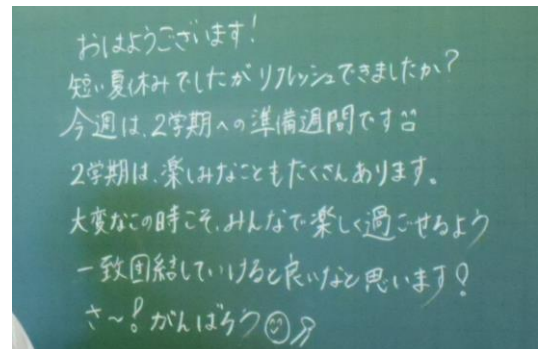 おはようございます!
短い夏休みでしたがリフレッシュできましたか?
今週は、2学期への準備週間です
2学期は、楽しみなこともたくさんあります。
大変なこの時こそ、みんなで楽しく過ごせるよう
一致団結していけると良いなと思います!
さ〜!がんばろう